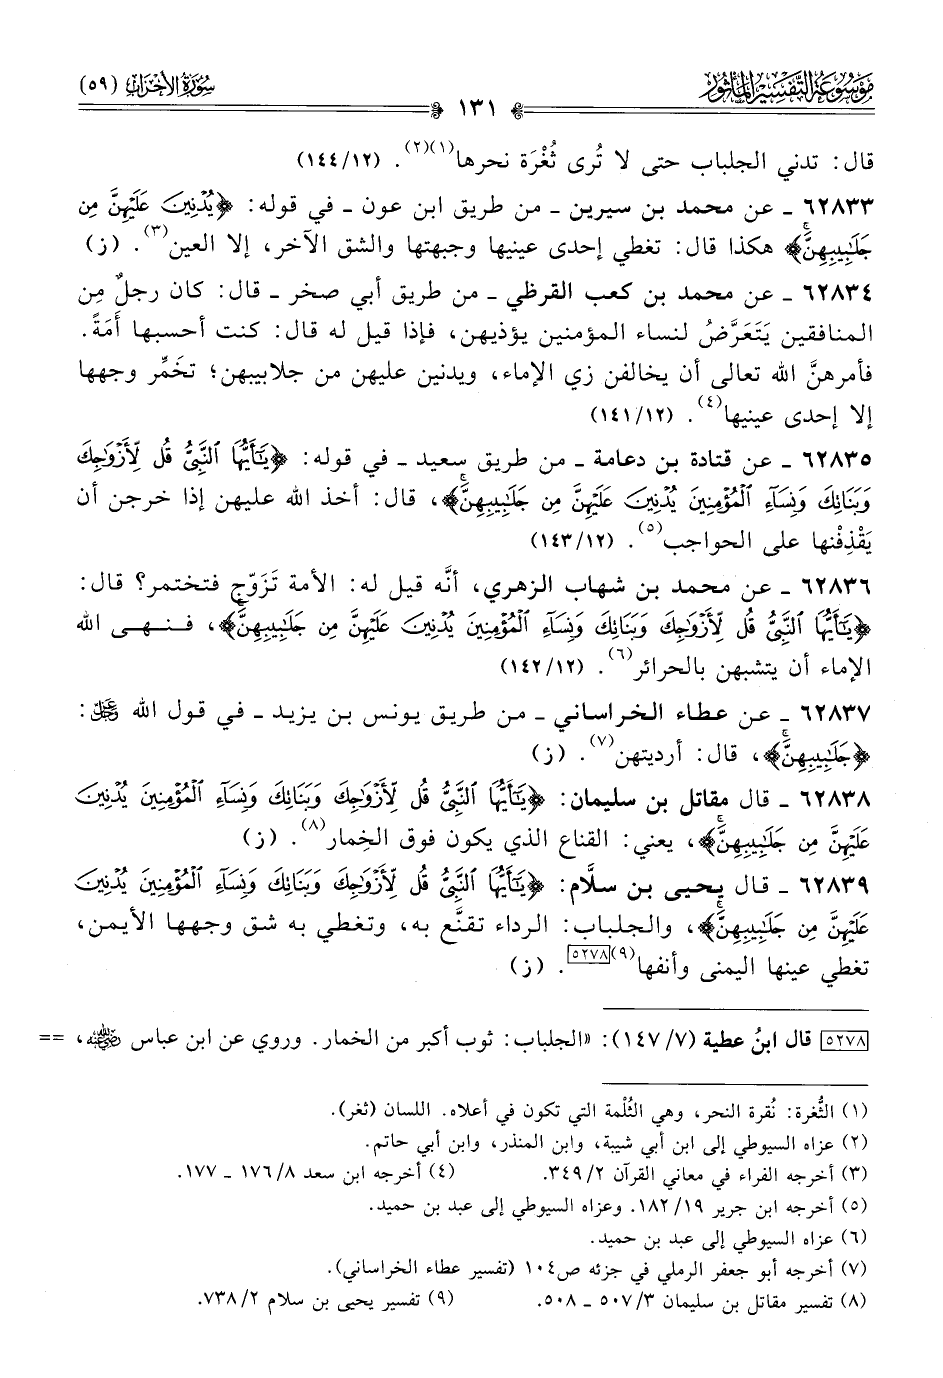 مَوْسُوعَةُ التَّفْسِيرِ المَأْثُورِ
سُورَةُ الأَحْزَابِ (٥٩)
١٣١
قال: تدني الجلباب حتى لا تُرى ثُغْرَة نحرها(١)(٢). (١٤٤/١٢)
٦٢٨٣٣ ـ عن محمد بن سيرين ـ من طريق ابن عون ـ في قوله: ﴿يُدْنِينَ عَلَيْهِنَّ مِن
جَلَٰبِيبِهِنَّۚ﴾ هكذا قال: تغطي إحدى عينيها وجبهتها والشق الآخر، إلا العين(٣). (ز)
٦٢٨٣٤ ـ عن محمد بن كعب القرظي ـ من طريق أبي صخر ـ قال: كان رجلٌ مِن
المنافقين يَتَعَرَّضُ لنساء المؤمنين يؤذيهن، فإذا قيل له قال: كنت أحسبها أَمَةً.
فأمرهنَّ الله تعالى أن يخالفن زي الإماء، ويدنين عليهن من جلابيبهن؛ تخَمِّر وجهها
إلا إحدى عينيها(٤). (١٤١/١٢)
٦٢٨٣٥ ـ عن قتادة بن دعامة ـ من طريق سعيد ـ في قوله: ﴿يَٰٓأَيُّهَا ٱلنَّبِيُّ قُل لِّأَزْوَٰجِكَ
وَبَنَاتِكَ وَنِسَآءِ ٱلْمُؤْمِنِينَ يُدْنِينَ عَلَيْهِنَّ مِن جَلَٰبِيبِهِنَّۚ﴾، قال: أخذ الله عليهن إذا خرجن أن
يَقْذِفْنها على الحواجب(٥). (١٤٣/١٢)
٦٢٨٣٦ ـ عن محمد بن شهاب الزهري، أنَّه قيل له: الأمة تَزَوّج فتختمر؟ قال:
﴿يَٰٓأَيُّهَا ٱلنَّبِيُّ قُل لِّأَزْوَٰجِكَ وَبَنَاتِكَ وَنِسَآءِ ٱلْمُؤْمِنِينَ يُدْنِينَ عَلَيْهِنَّ مِن جَلَٰبِيبِهِنَّۚ﴾، فنهى الله
الإماء أن يتشبهن بالحرائر(٦). (١٤٢/١٢)
٦٢٨٣٧ ـ عن عطاء الخراساني ـ من طريق يونس بن يزيد ـ في قول الله ﷻ:
﴿جَلَٰبِيبِهِنَّۚ﴾، قال: أرديتهن(٧). (ز)
٦٢٨٣٨ ـ قال مقاتل بن سليمان: ﴿يَٰٓأَيُّهَا ٱلنَّبِيُّ قُل لِّأَزْوَٰجِكَ وَبَنَاتِكَ وَنِسَآءِ ٱلْمُؤْمِنِينَ يُدْنِينَ
عَلَيْهِنَّ مِن جَلَٰبِيبِهِنَّۚ﴾، يعني: القناع الذي يكون فوق الخِمار(٨). (ز)
٦٢٨٣٩ ـ قال يحيى بن سلَّام: ﴿يَٰٓأَيُّهَا ٱلنَّبِيُّ قُل لِّأَزْوَٰجِكَ وَبَنَاتِكَ وَنِسَآءِ ٱلْمُؤْمِنِينَ يُدْنِينَ
عَلَيْهِنَّ مِن جَلَٰبِيبِهِنَّۚ﴾، والجلباب: الرداء تقنَّع به، وتغطي به شق وجهها الأيمن،
تغطي عينها اليمنى وأنفها(٩)[٥٢٧٨]. (ز)
[٥٢٧٨] قال ابنُ عطية (١٤٧/٧): «الجلباب: ثوب أكبر من الخمار. وروي عن ابن عباس ﵁، ==
(١) الثُّغرة: نُقرة النحر، وهي الثُلْمة التي تكون في أعلاه. اللسان (ثغر).
(٢) عزاه السيوطي إلى ابن أبي شيبة، وابن المنذر، وابن أبي حاتم.
(٣) أخرجه الفراء في معاني القرآن ٣٤٩/٢. (٤) أخرجه ابن سعد ١٧٦/٨ ـ ١٧٧.
(٥) أخرجه ابن جرير ١٨٢/١٩. وعزاه السيوطي إلى عبد بن حميد.
(٦) عزاه السيوطي إلى عبد بن حميد.
(٧) أخرجه أبو جعفر الرملي في جزئه ص١٠٤ (تفسير عطاء الخراساني).
(٨) تفسير مقاتل بن سليمان ٥٠٧/٣ ـ ٥٠٨. (٩) تفسير يحيى بن سلام ٧٣٨/٢.